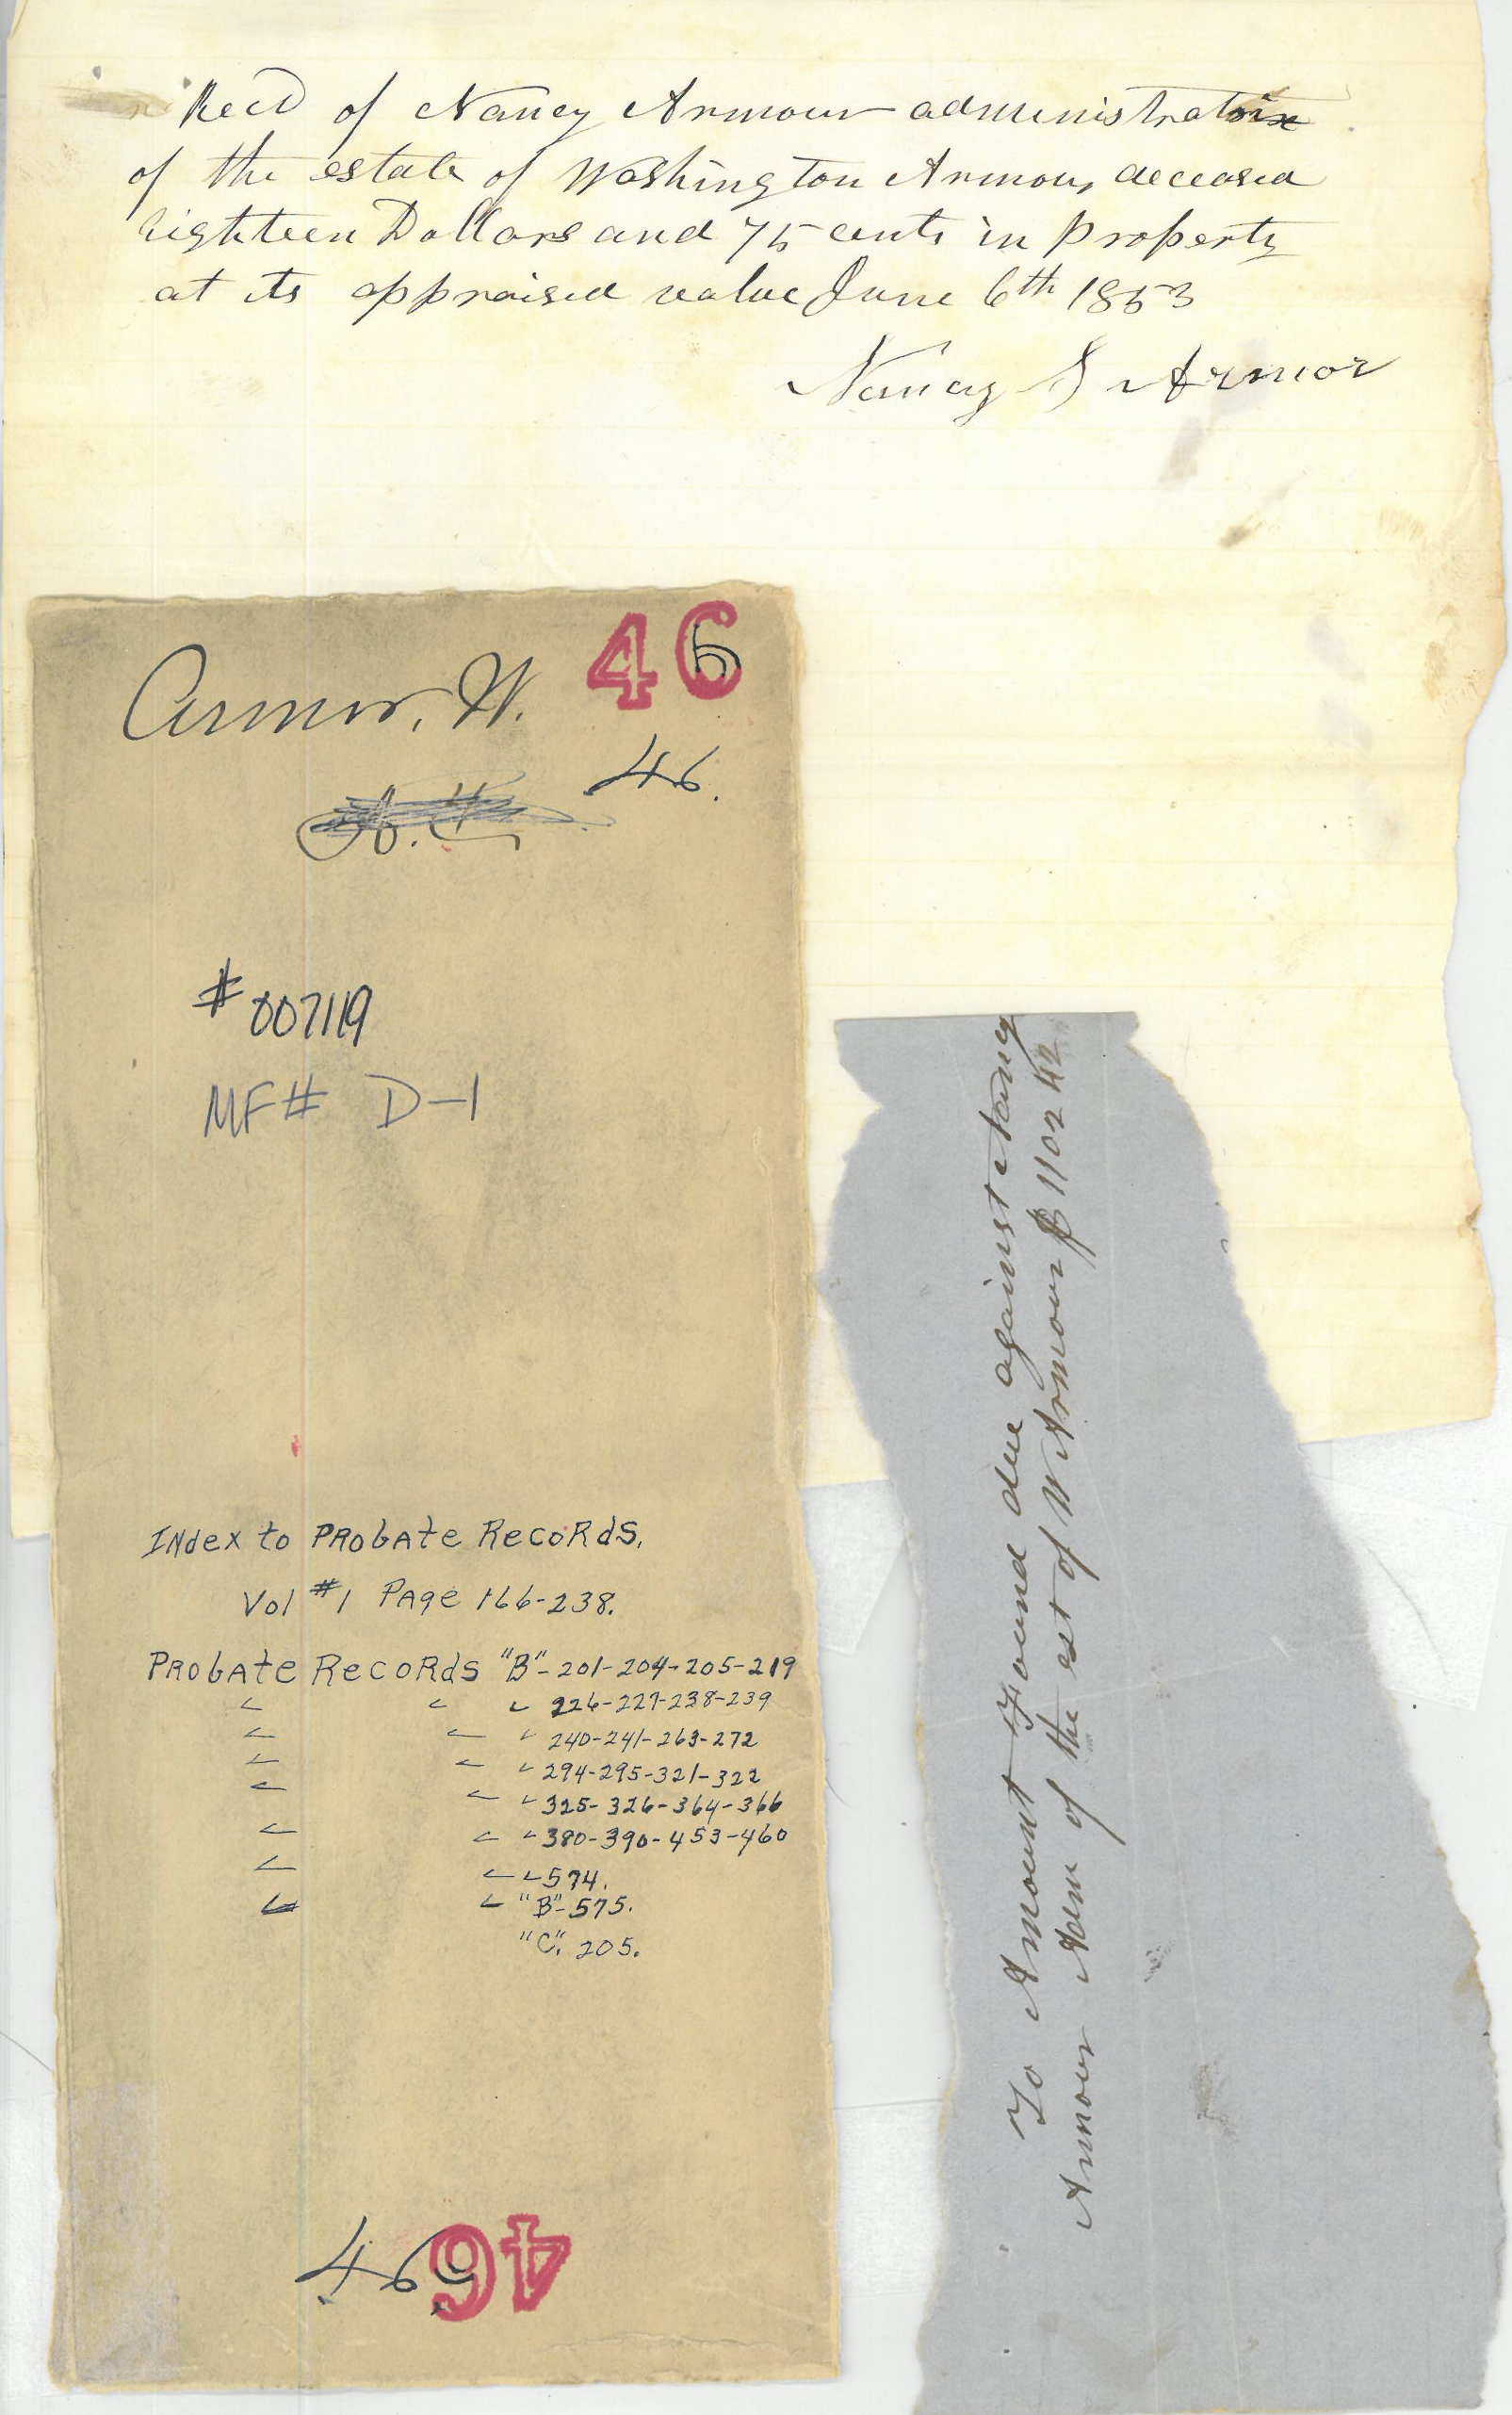 Recd of Nancy Armour administratrix
of the estate of Washington Armour deceased
Eighteen Dollars and 75 cents in property
at its appraised value June 6th 1853
Nancy S Armor
Armor, W.
46
46.
#007119
MF# D-1
Index to Probate Records.
Vol #1 Page 166-238.
Probate Records "B"- 201-204-205-219
" " " 226-227-238-239
" " " 240-241-263-272
" " " 294-295-321-322
" " " 325-326-364-366
" " " 380-390-453-460
" " " 574.
" " "B"-575.
"C". 205.
46
46
To Amount Found due against Nancy
Armour Adm of the est of W Armour $1102 42